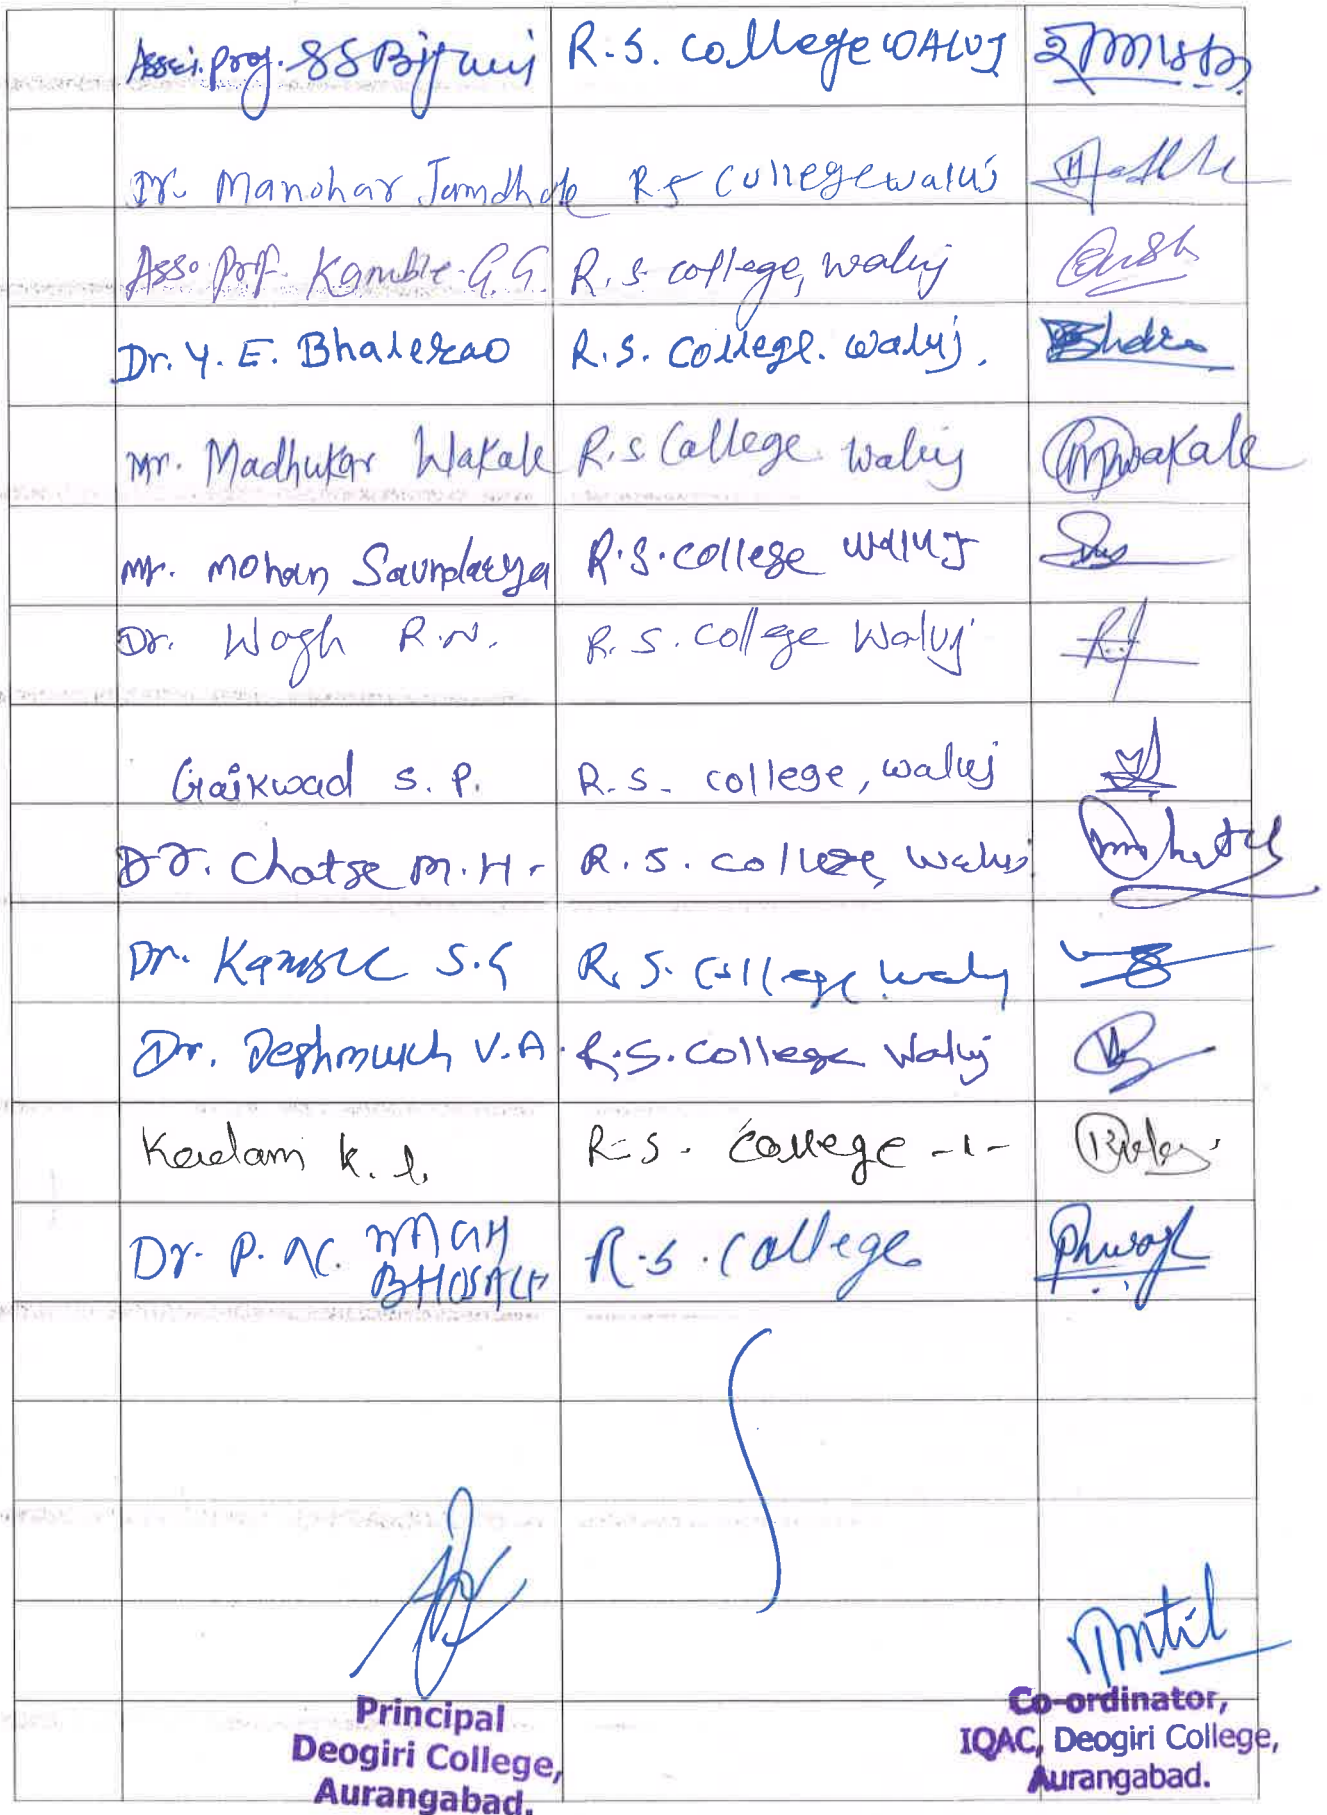 Assi. prof. S S R.S. College WALUJ
Dr. Manohar Jamdhade R S College waluj
Asso. Prof. Kamble G.G. R.S. college, waluj
Dr. Y. E. Bhalerao R.S. College. waluj.
Mr. Madhukar Wakale R.S College waluj Wakale
Mr. Mohan Saundarya R.S. college waluj
Dr. Wagh R.N. R.S. college Waluj
Gaikwad S. P. R.S. college, waluj
Dr. Chatse M.H. R.S. college, waluj
Dr. Kamble S.G R.S. College waluj
Dr. Deshmukh V.A. R.S. college Waluj
Kadam K. R.S. College -1-
Dr. P. WAGH R.S. College
BHOSALE
Principal
Deogiri College,
Aurangabad.
Co-ordinator,
IQAC, Deogiri College,
Aurangabad.